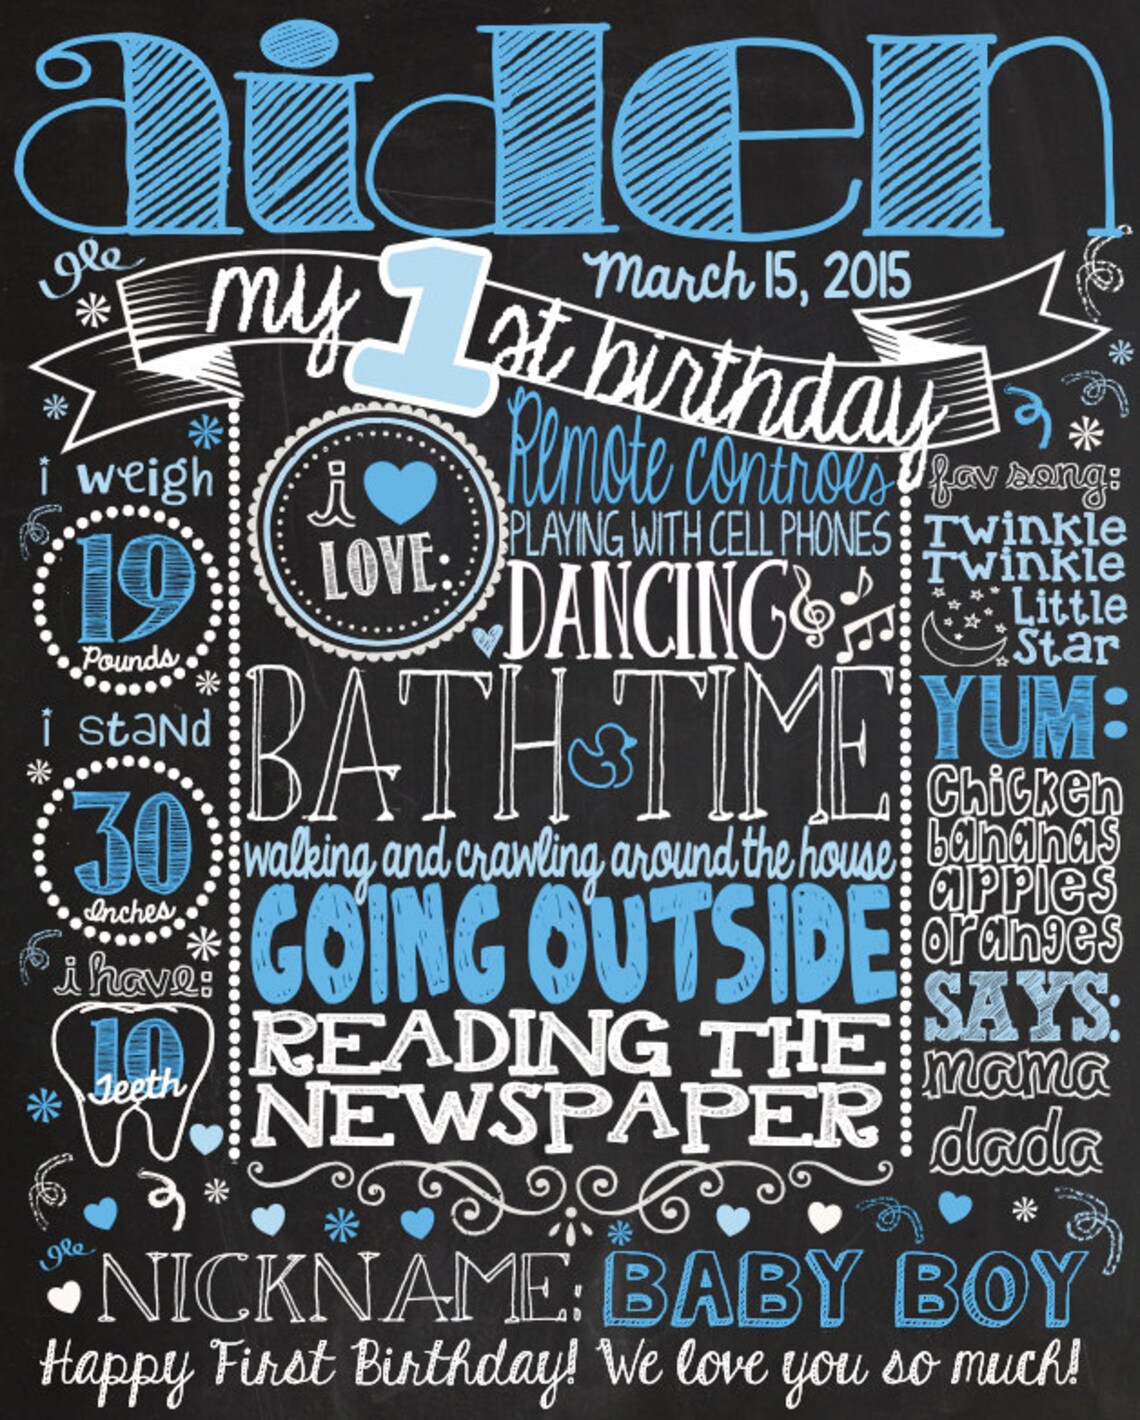 aiden
March 15, 2015
my 1st birthday
i weigh
19
Pounds
i stand
30
Inches
i have:
10
Teeth
i ♥
LOVE:
Remote controls
PLAYING WITH CELL PHONES
DANCING
BATH TIME
walking and crawling around the house
GOING OUTSIDE
READING THE
NEWSPAPER
fav song:
Twinkle
Twinkle
Little
Star
YUM:
Chicken
bananas
apples
oranges
SAYS:
mama
dada
NICKNAME: BABY BOY
Happy First Birthday! We love you so much!